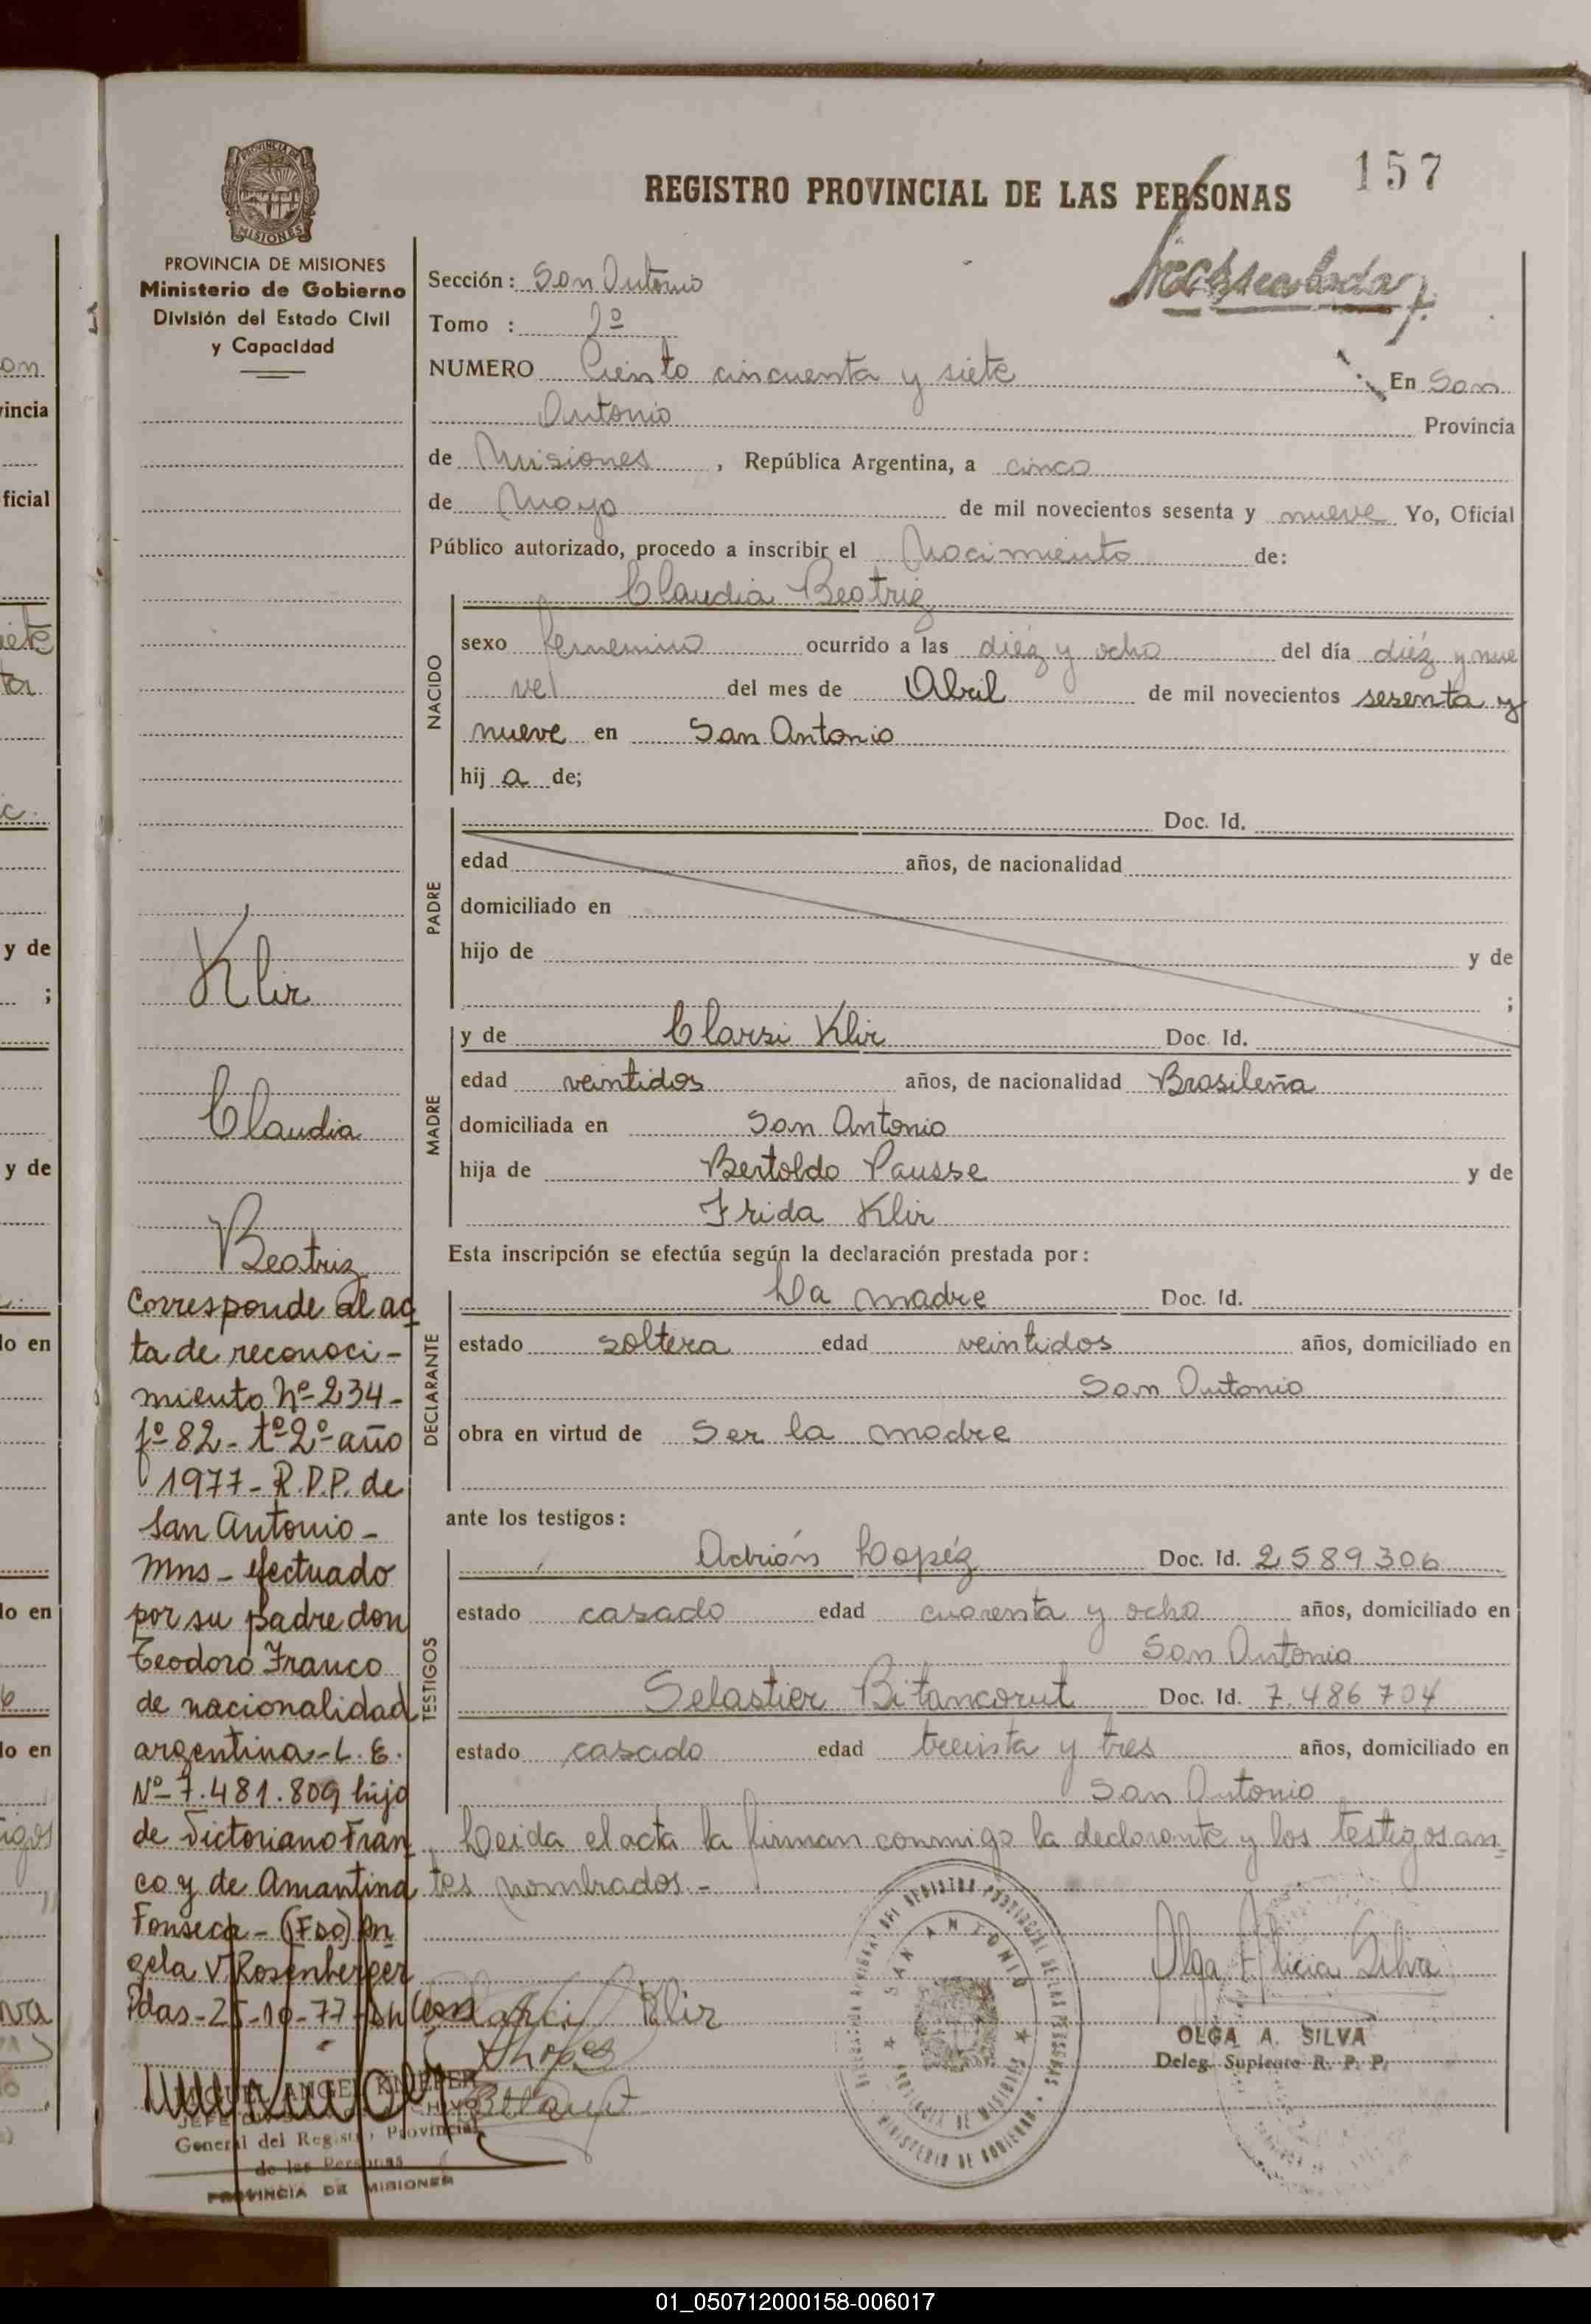 157
REGISTRO PROVINCIAL DE LAS PERSONAS
PROVINCIA DE MISIONES
Ministerio de Gobierno
División del Estado Civil
y Capacidad
Sección: San Antonio
Tomo : 2º
NUMERO Ciento cincuenta y siete En San
Antonio Provincia
de Misiones , República Argentina, a cinco
de Mayo de mil novecientos sesenta y nueve Yo, Oficial
Público autorizado, procedo a inscribir el Nacimiento de:
Claudia Beatriz
NACIDO
sexo femenino ocurrido a las diéz y ocho del día diéz y nue
ve del mes de Abril de mil novecientos sesenta y
nueve en San Antonio
hij a de;
PADRE
Doc. Id.
edad años, de nacionalidad
domiciliado en
hijo de y de
;
MADRE
y de Clarsi Klir Doc. Id.
edad veintidos años, de nacionalidad Brasileña
domiciliada en San Antonio
hija de Bertoldo Pausse y de
Frida Klir
Esta inscripción se efectúa según la declaración prestada por:
DECLARANTE
La madre Doc. Id.
estado soltera edad veintidos años, domiciliado en
San Antonio
obra en virtud de Ser la madre
ante los testigos:
TESTIGOS
Adrián Lopéz Doc. Id. 2.589.306
estado casado edad cuarenta y ocho años, domiciliado en
San Antonio
Selastier Bitancorut Doc. Id. 7.486704
estado casado edad treinta y tres años, domiciliado en
San Antonio
Leida el acta la firman conmigo la declarante y los testigos an
tes nombrados.-
Klir
Claudia
Beatriz
Corresponde al ac
ta de reconoci-
miento Nº 234-
fº 82- tº 2º año
1977- R.P.P. de
San Antonio-
Mns- efectuado
por su padre don
Teodoro Franco
de nacionalidad
argentina-L.E.
Nº 7.481.809 hijo
de Victoriano Fran
co y de Amantina
Fonseca- (Fdo) An
gela V. Rosenberger
Pdas-25-10-77-
Klir
Olga Alicia Silva
OLGA A. SILVA
Deleg. Suplente R. P. P.
General del Registro Provincial
de las Personas
PROVINCIA DE MISIONES
SAN ANTONIO
PROVINCIA DE MISIONES
MINISTERIO DE GOBIERNO
01_050712000158-006017